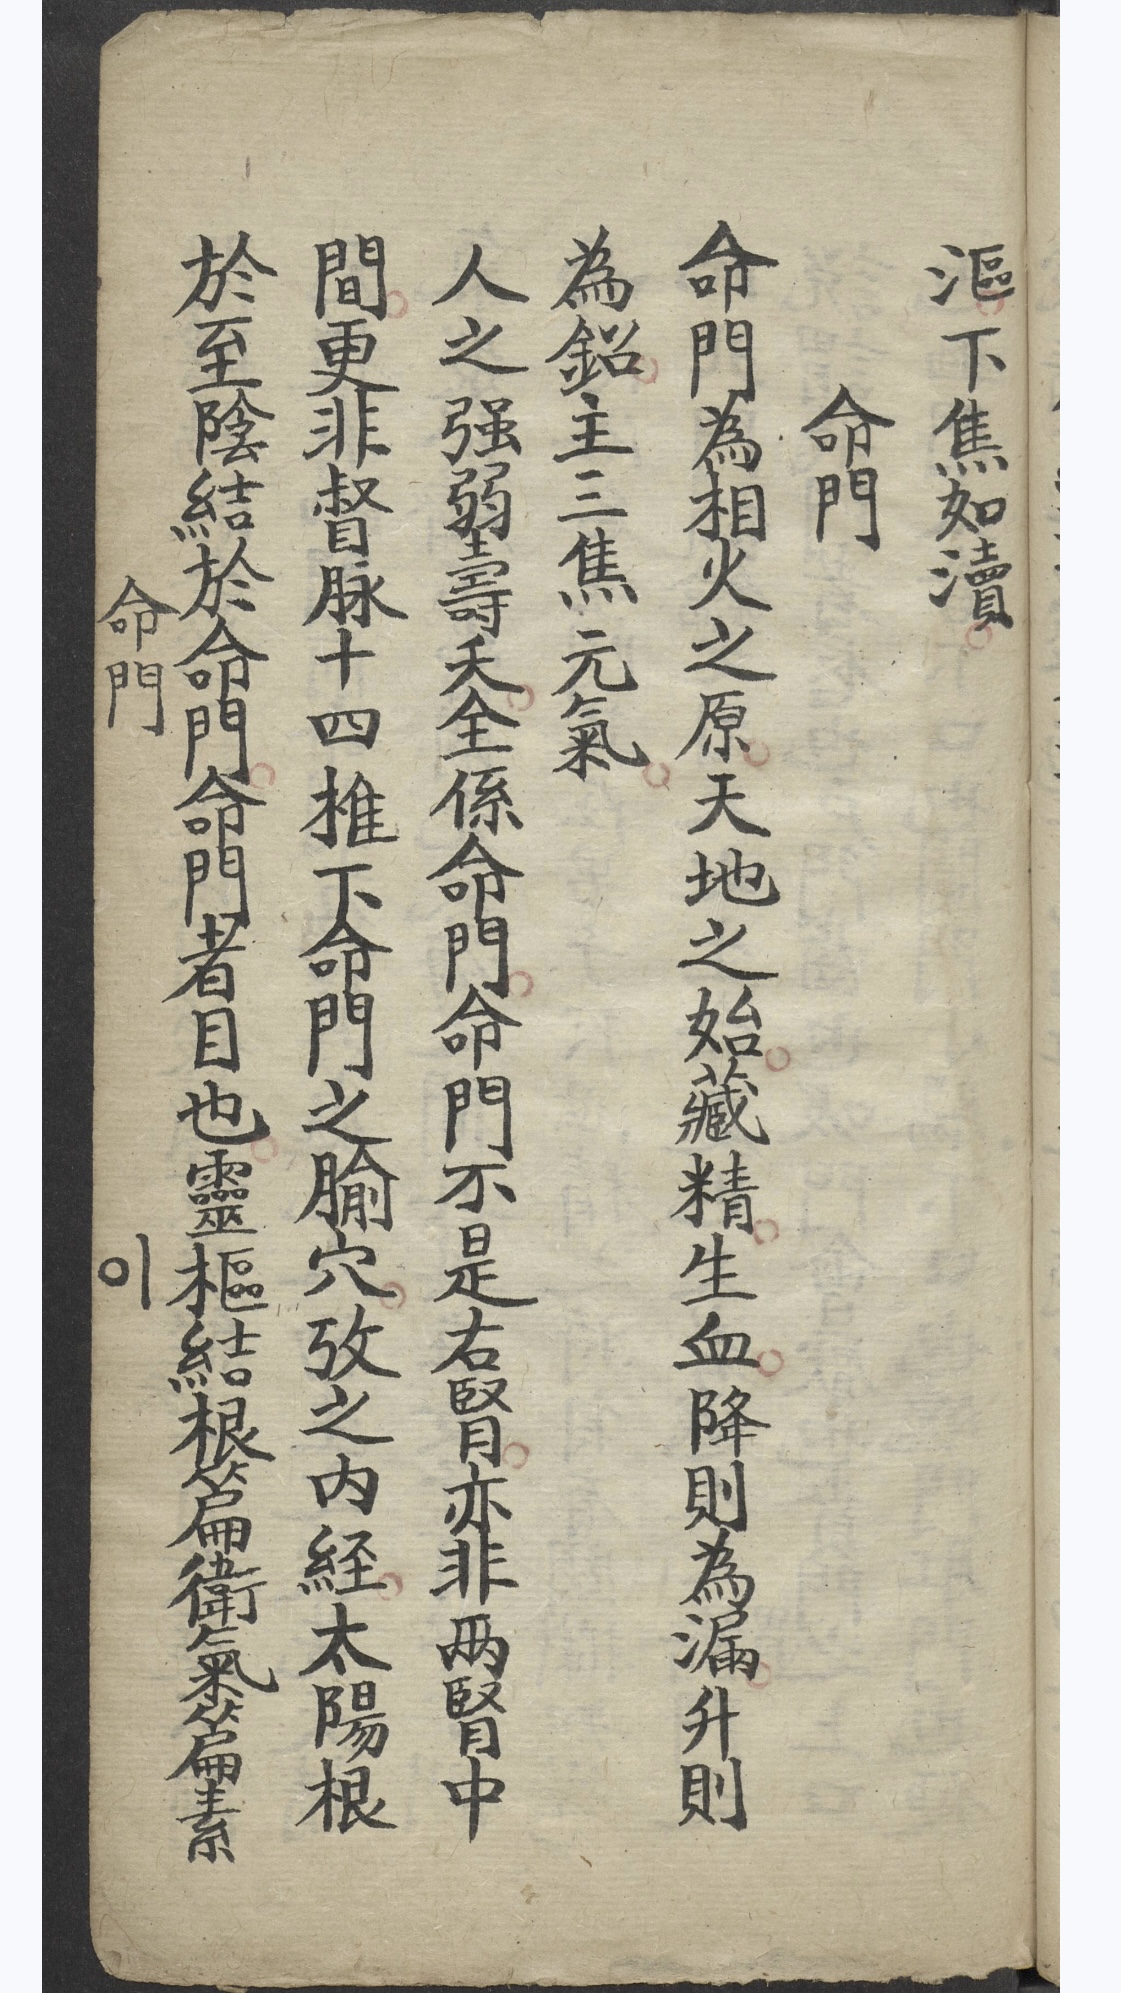 漚下焦如瀆
命門
命門為相火之原天地之始藏精生血降則為漏升則
為鉛主三焦元氣
人之强弱壽夭全係命門命門不是右腎亦非兩腎中
間更非督脉十四椎下命門之腧穴攷之内経太陽根
於至陰結於命門命門者目也靈樞結根篇衛氣篇素
命門